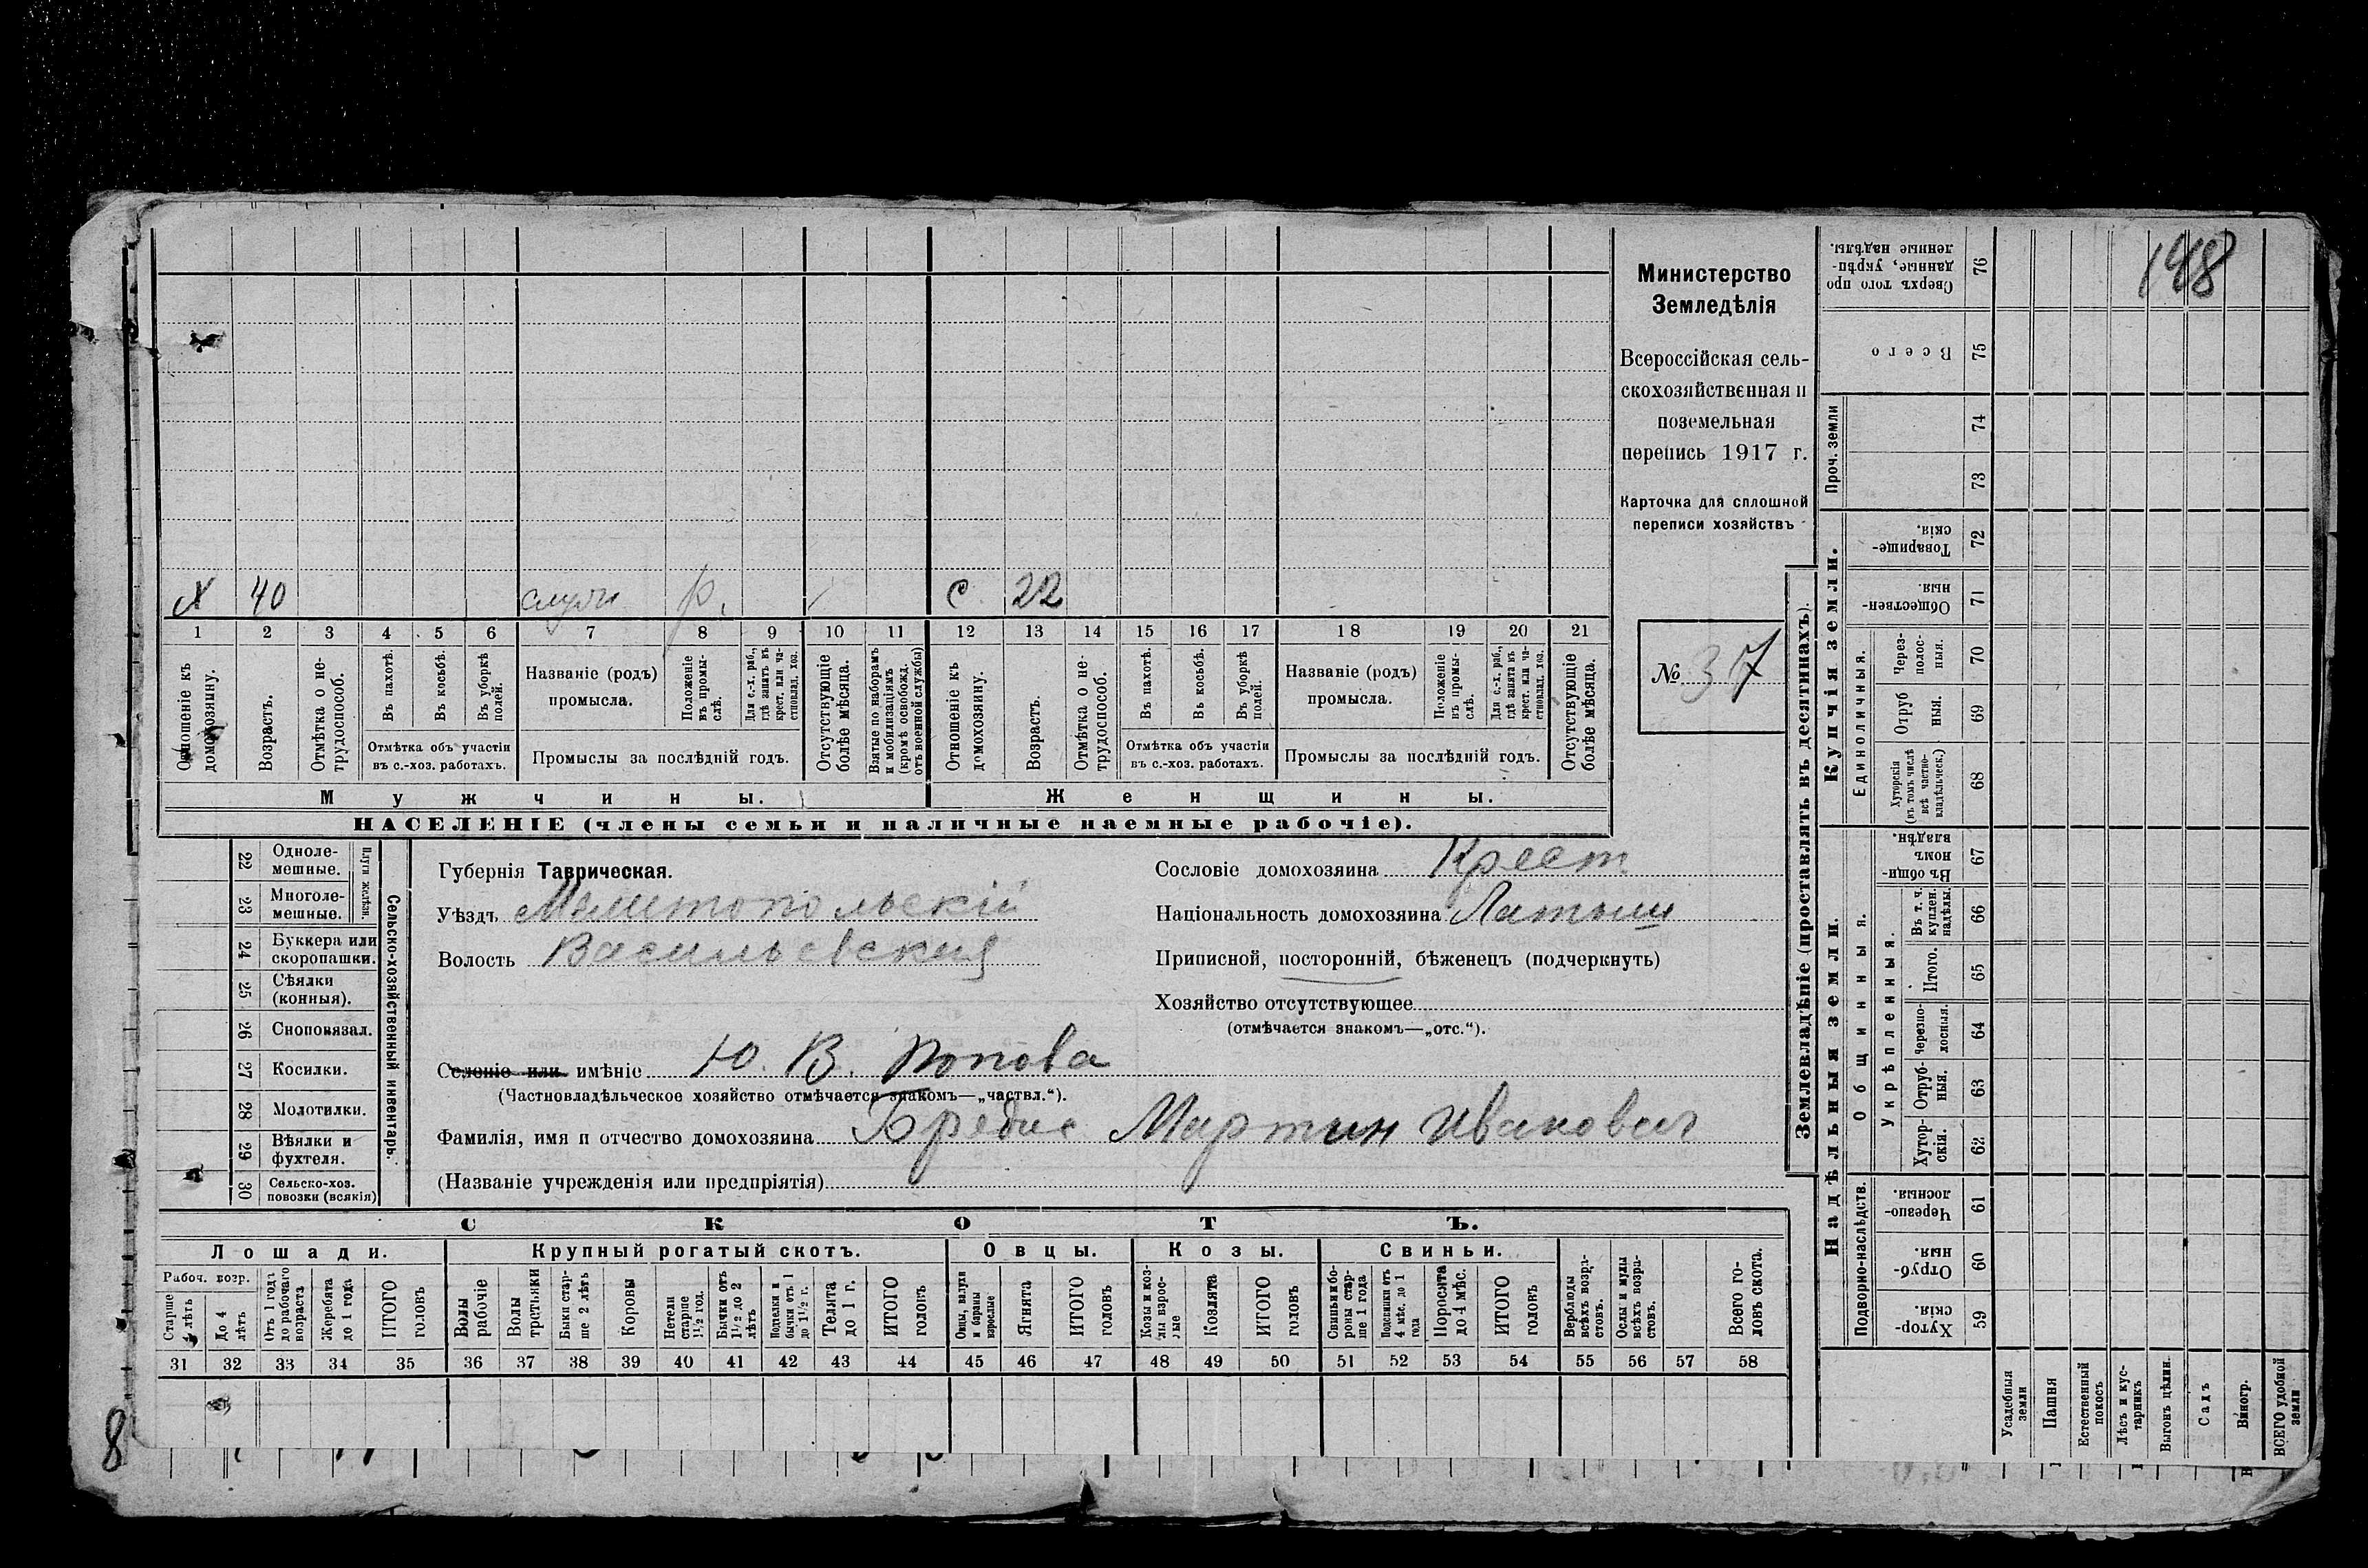 198
Министерство
Земледѣлія
Всероссійская сель-
скохозяйственная и
поземельная
перепись 1917 г.
Карточка для сплошной
переписи хозяйствъ
№ 37
х 40 служ р. с 22
1 2 3 4 5 6 7 8 9 10 11 12 13 14 15 16 17 18 19 20 21
Отношеніе къ домохозяину.
Возрастъ.
Отмѣтка о не-трудоспособ.
Въ пахотѣ.
Въ косьбѣ.
Въ уборкѣ полей.
Названіе (родъ)
промысла.
Положеніе въ промы-слѣ.
Для с.-х. раб., гдѣ занятъ въ крест. или ча-стновлад. хоз.
Отсутствующіе болѣе мѣсяца.
Взятые по наборамъ и мобилизаціямъ (кромѣ освобожд. отъ военной службы)
Отношеніе къ домохозяину.
Возрастъ.
Отмѣтка о не-трудоспособ.
Въ пахотѣ.
Въ косьбѣ.
Въ уборкѣ полей.
Названіе (родъ)
промысла.
Положеніе въ промы-слѣ.
Для с.-х. раб., гдѣ занята въ крест. или ча-стновлад. хоз.
Отсутствующіе болѣе мѣсяца.
Отмѣтка объ участіи
въ с.-хоз. работахъ.
Промыслы за послѣдній годъ.
Отмѣтка объ участіи
въ с.-хоз. работахъ.
Промыслы за послѣдній годъ.
Мужчины. Женщины.
НАСЕЛЕНІЕ (члены семьи и наличные наемные рабочіе).
22 Одноле-мешные.
23 Многоле-мешные.
Плуги желѣзн.
24 Буккера или скоропашки.
25 Сѣялки (конныя).
26 Сноповязал.
27 Косилки.
28 Молотилки.
29 Вѣялки и фухтеля.
30 Сельско-хоз. повозки (всякія)
Сельско-хозяйственный инвентарь.
Губернія Таврическая.
Уѣздъ Мелитопольскій
Волость Васильевская
Сословіе домохозяина Крест
Національность домохозяина Латыш
Приписной, посторонній, бѣженецъ (подчеркнуть)
Хозяйство отсутствующее
(отмѣчается знакомъ—„отс.“).
Селеніе или имѣніе Ю. В. Попова
(Частновладѣльческое хозяйство отмѣчается знакомъ—„частвл.“).
Фамилія, имя и отчество домохозяина Бредис Мартин Иванович
(Названіе учрежденія или предпріятія)
СКОТЪ.
Лошади. Крупный рогатый скотъ. Овцы. Козы. Свиньи.
Рабоч. возр.
Старше 4 лѣтъ
До 4 лѣтъ
Отъ 1 года до рабочаго возраста
Жеребята до 1 года
ИТОГО головъ
Волы рабочіе
Волы третьяки
Быки стар-ше 2 лѣтъ
Коровы
Нетели старше 1½ год.
Бычки отъ 1½ до 2 лѣтъ
Подтелки и бычки отъ 1 до 1½ г.
Телята до 1 г.
ИТОГО головъ
Овцы, валухи и бараны взрослые
Ягнята
ИТОГО головъ
Козы и коз-лы взрос-лые
Козлята
ИТОГО головъ
Свиньи и бо-ровы стар-ше 1 года
Подсвинки отъ 4 мѣс. до 1 года
Поросята до 4 мѣс.
ИТОГО головъ
Верблюды всѣхъ возра-стовъ.
Ослы и мулы всѣхъ возра-стовъ.
Всего го-ловъ скота.
31 32 33 34 35 36 37 38 39 40 41 42 43 44 45 46 47 48 49 50 51 52 53 54 55 56 57 58
Землевладѣніе (проставлять въ десятинахъ).
Купчія земли.
Надѣльныя земли.
Сверхъ того про данные, укрѣп-ленные надѣлы. 76
Всего 75
Проч. земли 74
73
Товарище-скія. 72
Обществен-ныя 71
Единоличныя.
Через-полос-ныя. 70
Отруб ныя. 69
Хуторскія (въ томъ числѣ всѣ частно-владѣльческ.) 68
Общинныя.
Въ общи-номъ владѣн. 67
Укрѣпленныя.
Въ т. ч. куплен. надѣлы 66
Итого. 65
Черезпо-лосныя. 64
Отруб-ныя. 63
Хутор-скія. 62
Подворно-наслѣдств.
Черезпо-лосныя. 61
Отруб-ныя. 60
Хутор-скія. 59
Усадебныя земли
Пашня
Естественный покосъ
Лѣсъ и кус-тарникъ
Выгонъ цѣлин.
Садъ
Виногр.
ВСЕГО удобной земли
8